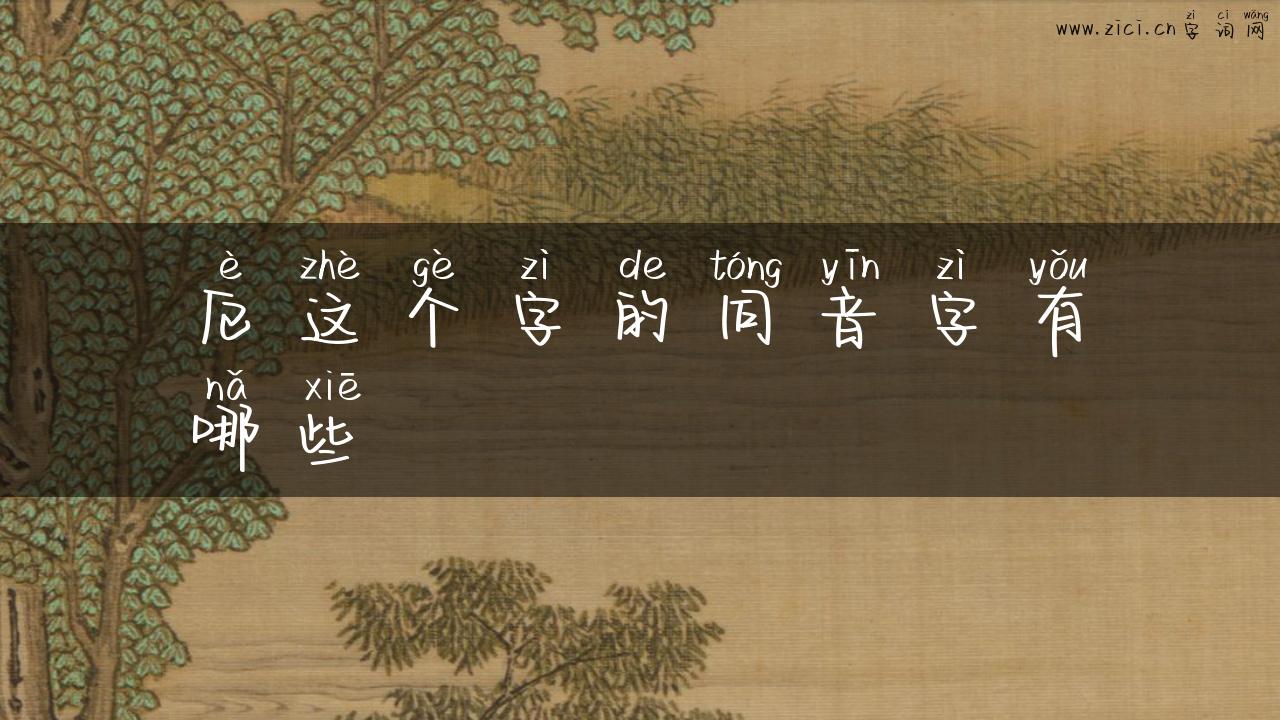 zì cí wǎng
www.zici.cn字词网
è zhè gè zì de tóng yīn zì yǒu
厄这个字的同音字有
nǎ xiē
哪些